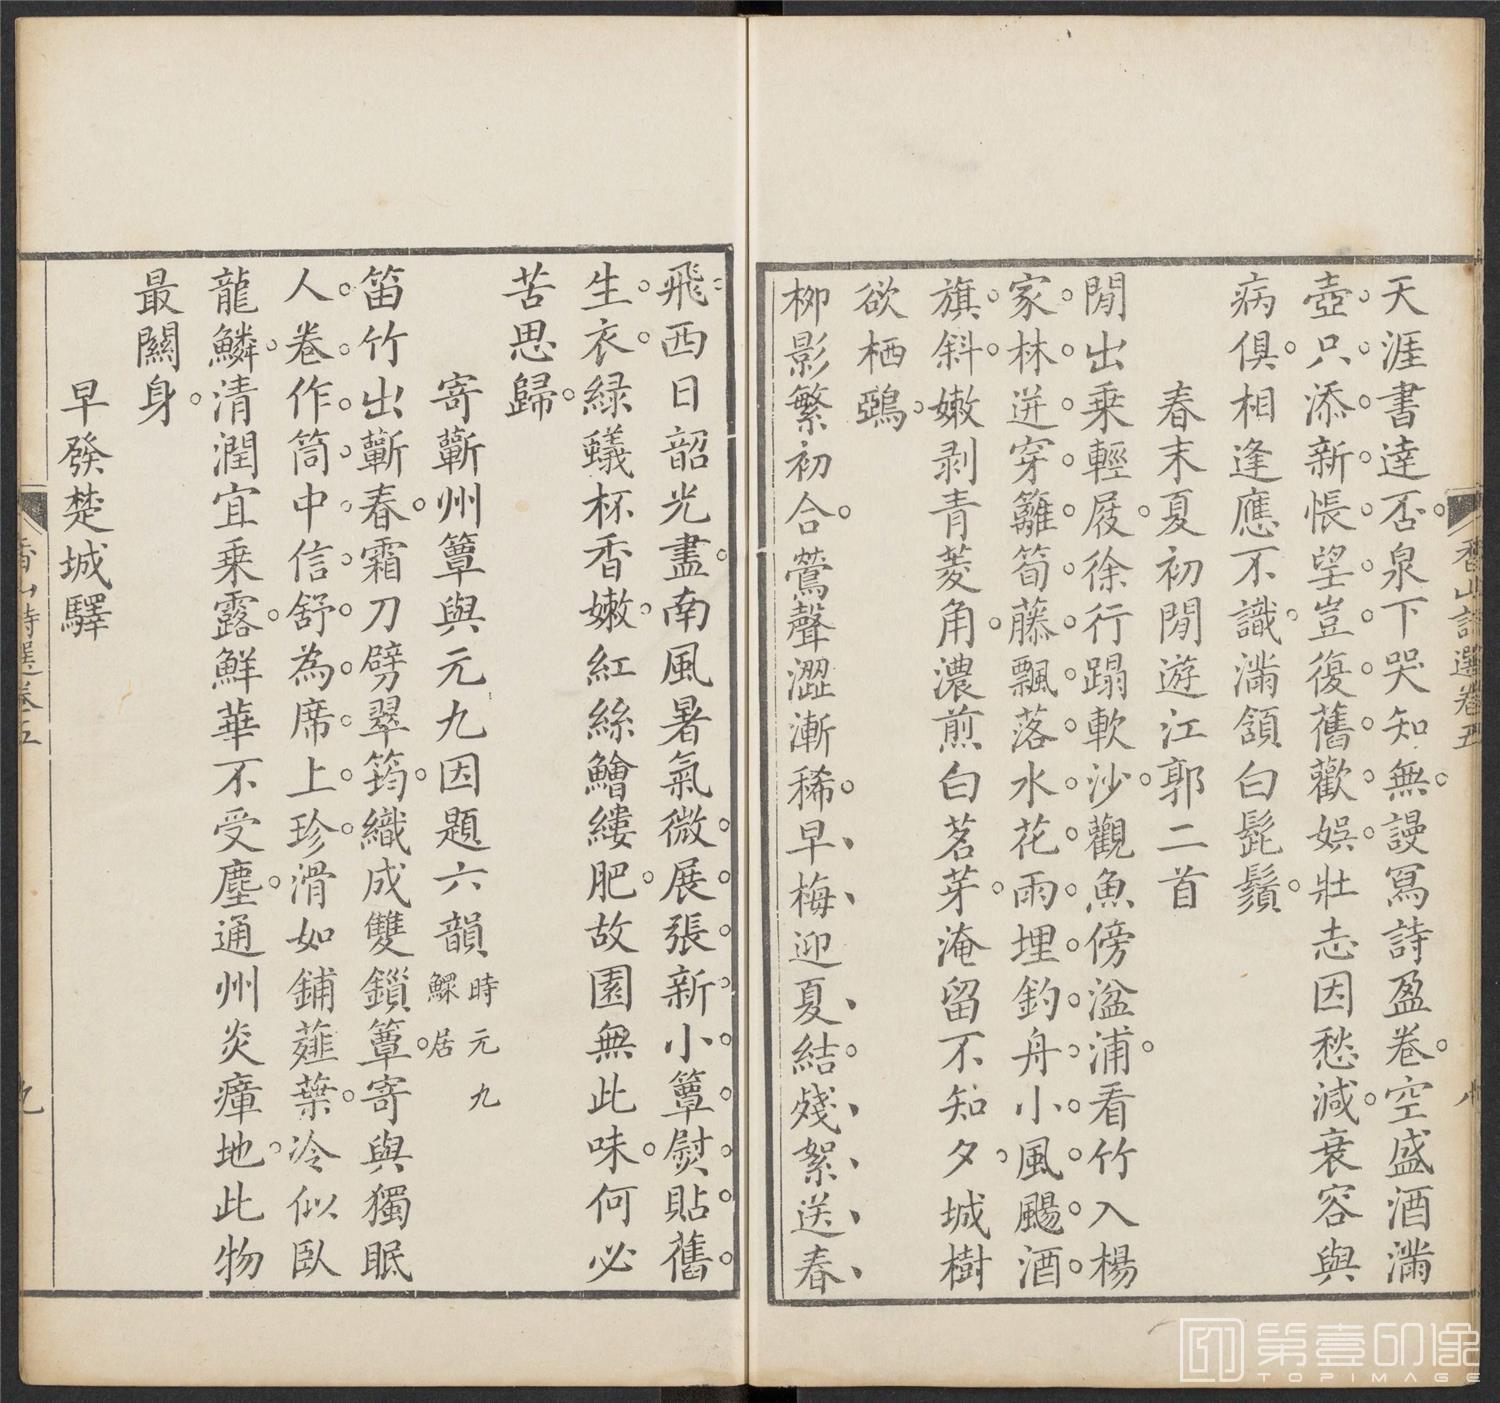 天涯書達否泉下哭知無謾寫詩盈卷空盛酒滿
壺只添新悵望豈復舊歡娛壯志因愁減衰容與
病俱相逢應不識滿頷白髭鬚
春末夏初閒遊江郭二首
閒出乘輕屐徐行蹋軟沙觀魚傍湓浦看竹入楊
家林迸穿籬筍藤飄落水花雨埋釣舟小風颺酒
旗斜嫩剥青菱角濃煎白茗芽淹留不知夕城樹
欲栖鵶
柳影繁初合鶯聲澀漸稀早梅迎夏結殘絮送春
香山詩選卷五
八
飛西日韶光盡南風暑氣微展張新小簟熨貼舊
生衣綠蟻杯香嫩紅絲鱠縷肥故園無此味何必
苦思歸
寄蘄州簟與元九因題六韻時元九鰥居
笛竹出蘄春霜刀劈翠筠織成雙鎖簟寄與獨眠
人卷作筒中信舒為席上珍滑如鋪薤葉冷似臥
龍鱗清潤宜乘露鮮華不受塵通州炎瘴地此物
最關身
早發楚城驛
香山詩選卷五
九
第壹印像
TOPIMAGE